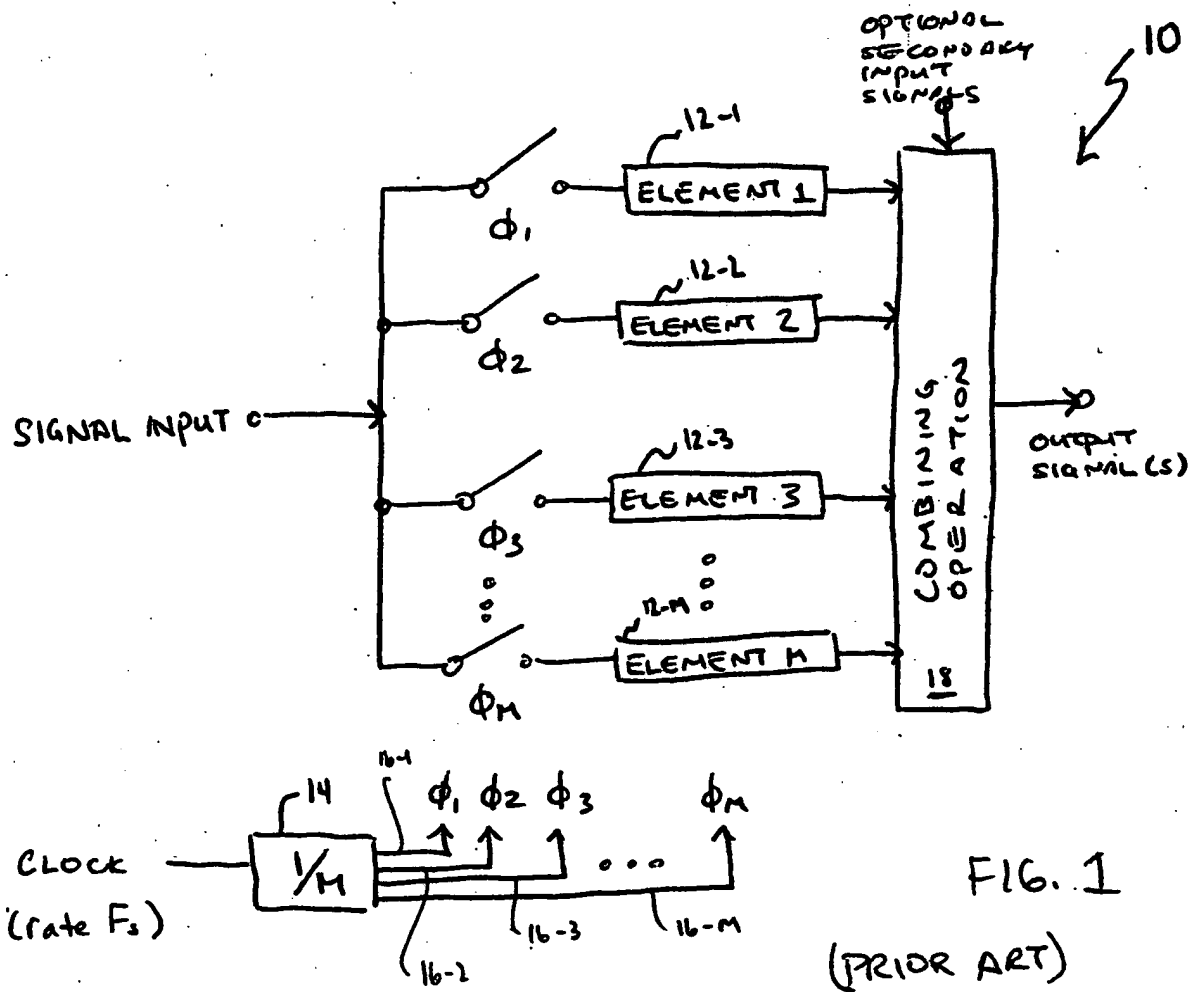 OPTIONAL
SECONDARY
INPUT
SIGNALS
10
12-1
ELEMENT 1
ϕ1
12-2
ELEMENT 2
ϕ2
SIGNAL INPUT
12-3
ELEMENT 3
ϕ3
12-M
ELEMENT M
ϕM
COMBINING
OPERATION
18
OUTPUT
SIGNAL(S)
16-1
14
ϕ1 ϕ2 ϕ3 ϕM
CLOCK
(rate Fs)
1/M
16-2
16-3
16-M
FIG. 1
(PRIOR ART)